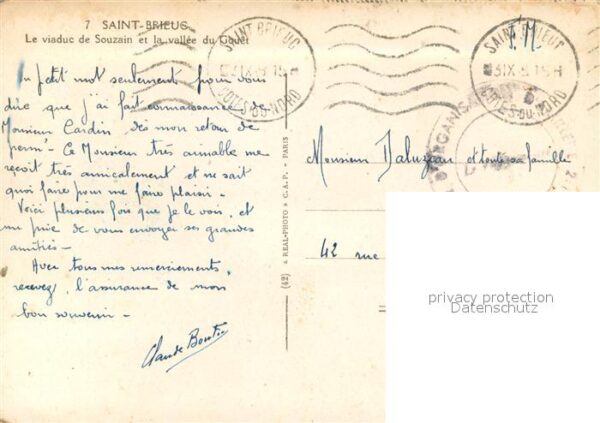 7 SAINT-BRIEUC
Le viaduc de Souzain et la vallée du Gouët
Un petit mot seulement pour vous
dire que j'ai fait connaissance de
Monsieur Cardin dès mon retour de
perm! Ce Monsieur très aimable me
reçoit très amicalement et ne sait
quoi faire pour me faire plaisir.
Voici plusieurs fois que je le vois, et
me prie de vous envoyer ses grandes
amitiés -
Avec tous mes remerciements,
recevez, l'assurance de mon
bon souvenir -
Claude
(42) A REAL-PHOTO C.A.P. - PARIS
SAINT BRIEUC
CÔTES-DU-NORD
F.M
SAINT BRIEUC
CÔTES-DU-NORD
Monsieur et toute sa famille
42 rue
privacy protection
Datenschutz